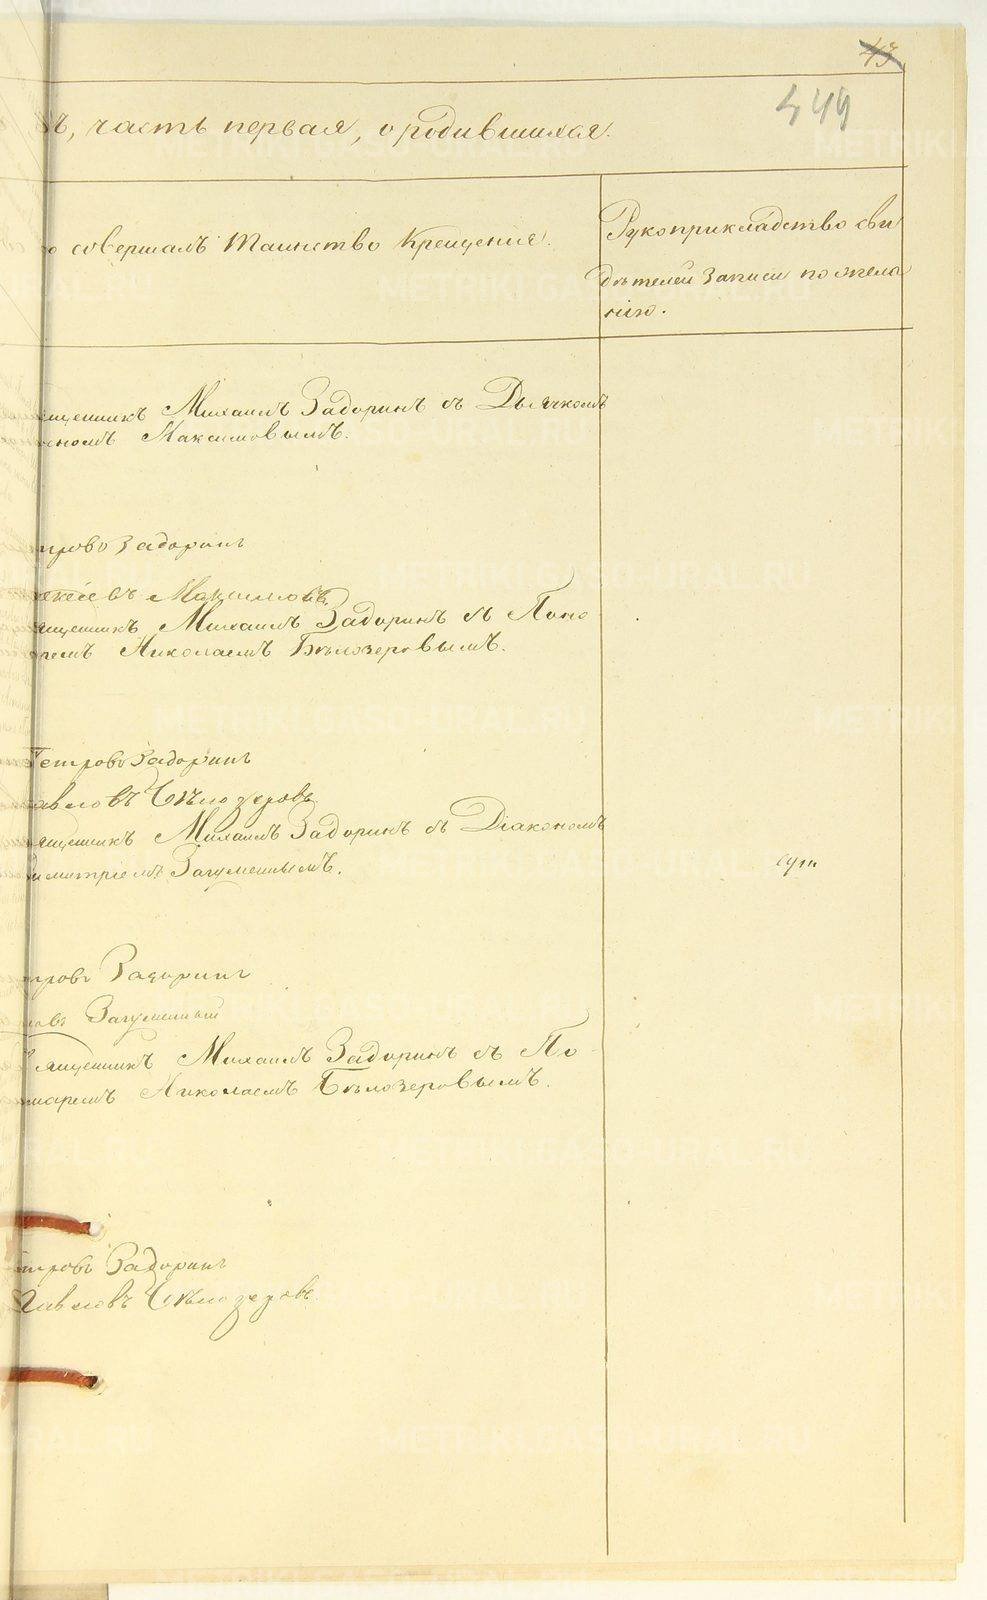 43
449
ъ, часть первая, о родившихся.
о совершалъ таинство Крещенія.
Рукоприкладство сви
дѣтелей записи по жела
нію.
щенникъ Михаилъ Задоринъ съ Дьячкомъ
номъ Максимовымъ.
тровъ Задоринъ
ексѣевъ Максимовъ
ященникъ Михаилъ Задоринъ съ Поно
ремъ Николаемъ Бѣлозеровымъ.
Петровъ Задоринъ
авловъ Бѣлозеровъ
ященникъ Михаилъ Задоринъ съ Діакономъ
имитріемъ Загуменнымъ.
тровъ Задоринъ
новъ Загуменный
Священникъ Михаилъ Задоринъ съ По
маремъ Николаемъ Бѣлозеровымъ.
тровъ Задоринъ
Павловъ Бѣлозеровъ
METRIKI.GASO-URAL.RU